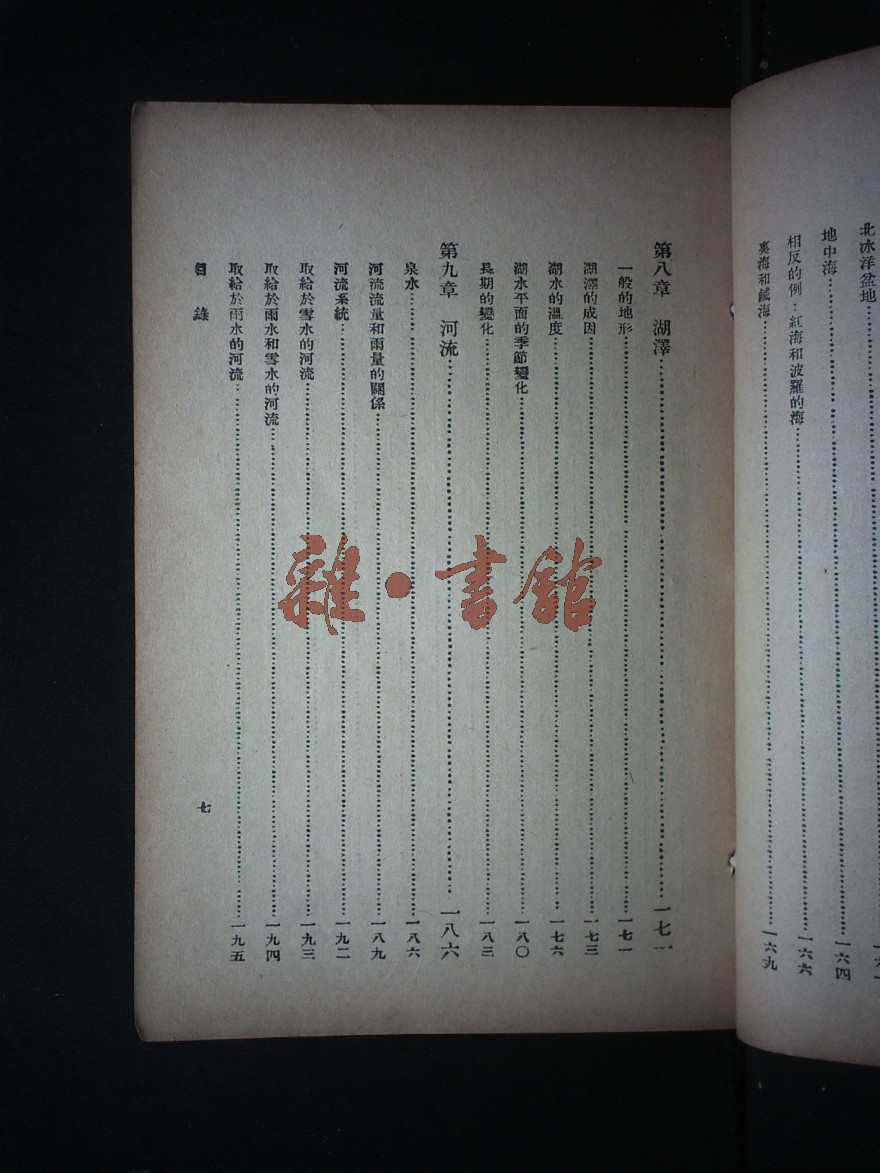 北冰洋盆地
地中海……一六四
相反的例：紅海和波羅的海……一六六
裏海和鹹海……一六九
第八章　湖澤……一七一
一般的地形……一七一
湖澤的成因……一七三
湖水的溫度……一七六
湖水平面的季節變化……一八〇
長期的變化……一八三
第九章　河流……一八六
泉水……一八六
河流流量和雨量的關係……一八九
河流系統……一九二
取給於雪水的河流……一九三
取給於雨水和雪水的河流……一九四
取給於雨水的河流……一九五
目錄
七
雜·書館